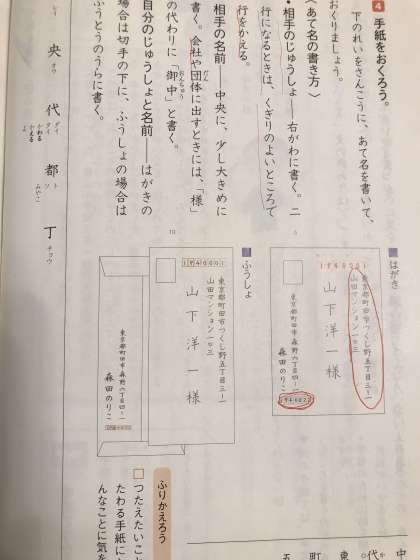 4 手紙をおくろう。
下のれいをさんこうに、あて名を書いて、
おくりましょう。
〈あて名の書き方〉
・相手のじゅうしょ――右がわに書く。二
行になるときは、くぎりのよいところで
行をかえる。
相手の名前――中央に、少し大きめに
書く。会社や団体に出すときには、「様」
だん
の代わりに「御中」と書く。
おんちゅう
自分のじゅうしょと名前――はがきの
場合は切手の下に、ふうしょの場合は
ふうとうのうらに書く。
5
10
はがき
1940001
東京都町田市つくし野五丁目三-一
山田マンション一〇三
山下洋一様
東京都町田市森野六丁目四-一
森田のりこ
ふうしょ
1940001
東京都町田市つくし野五丁目三-一
山田マンション一〇三
山下洋一様
東京都町田市森野六丁目四-一
森田のりこ
央 オウ
代 ダイ タイ かわる かえる よ
都 ト ツ みやこ
丁 チョウ
ふりかえろう
つたえたいこと
たわる手紙に
んなことに気を
中
代
東
町
五